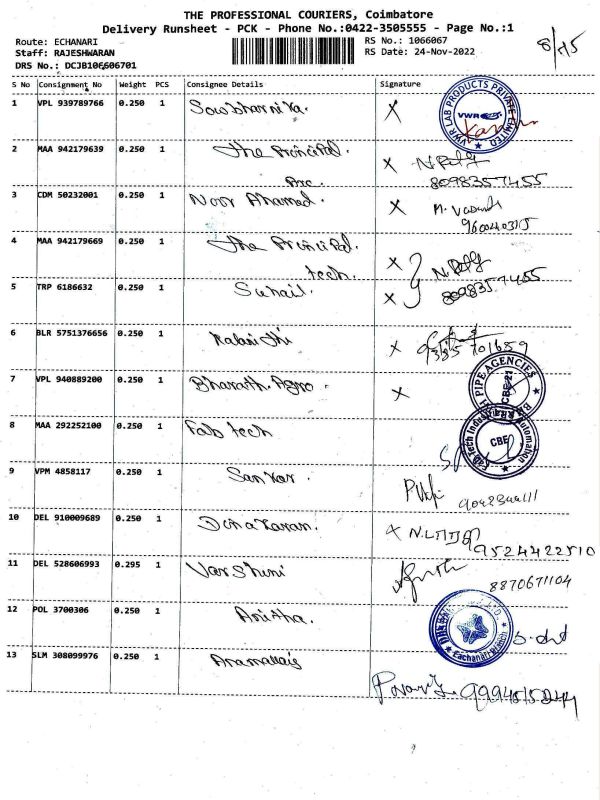 THE PROFESSIONAL COURIERS, Coimbatore
Delivery Runsheet - PCK - Phone No.:0422-3505555 - Page No.:1
Route: ECHANARI
RS No.: 1066067
Staff: RAJESHWARAN
RS Date: 24-Nov-2022
DRS No.: DCJB106606701
S No Consignment No Weight PCS Consignee Details Signature
1 VPL 939789766 0.250 1 Sowbharniya.
VWR LAB PRODUCTS PRIVATE LIMITED
VWR
2 MAA 942179639 0.250 1 The Principal.
8098357455
3 CDM 50232001 0.250 1 Noor Ahamed.
4 MAA 942179669 0.250 1 The Principal.
tech.
5 TRP 6186632 0.250 1 Suhail.
8098357455
6 BLR 5751376656 0.250 1
7 VPL 940889200 0.250 1 Bharath Agro.
PIPE AGENCIES
CBE-21
8 MAA 292252100 0.250 1 Fab tech
Fab Tech Industrial Automation
CBE
9 VPM 4858117 0.250 1 Sankar.
10 DEL 910009689 0.250 1 Dinakaran.
9524422510
11 DEL 528606993 0.295 1 Varshini
8870671104
12 POL 3700306 0.250 1 Anitha.
Eachanari Branch
13 SLM 308099976 0.250 1